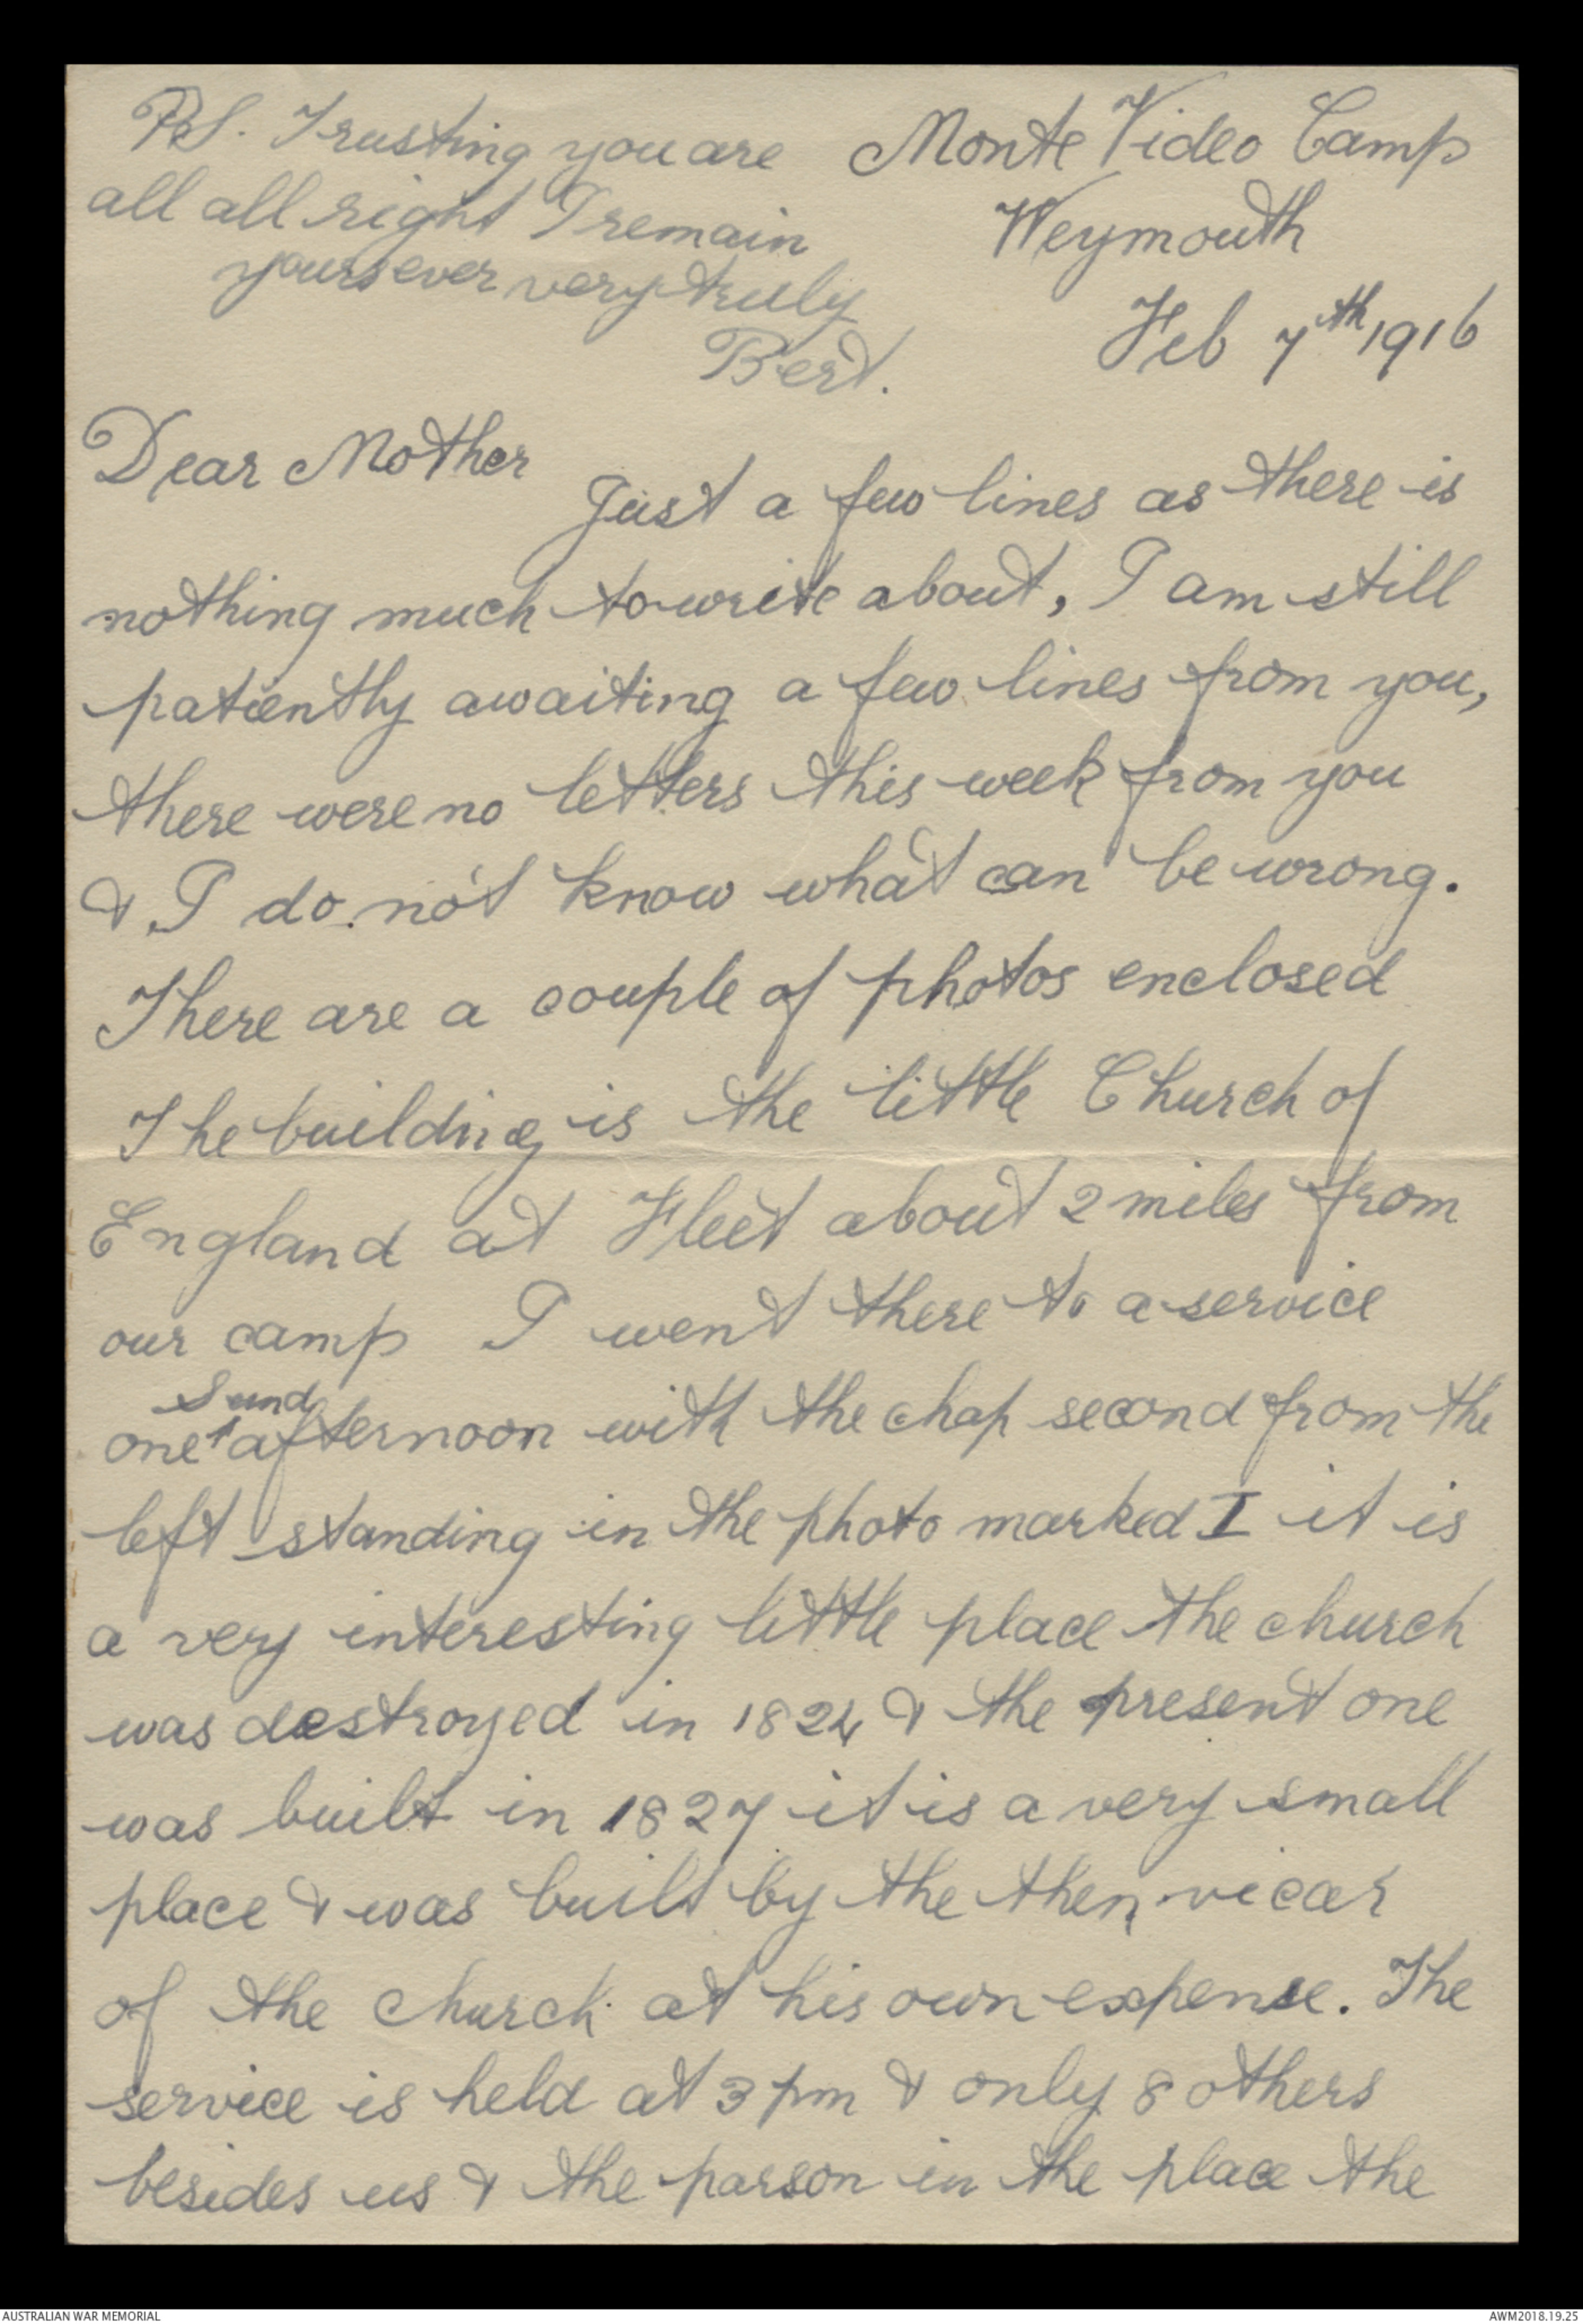 P.S. Trusting you are
all all right I remain
yours ever very truly
Bert.
Monte Video Camp
Weymouth
Feb 7th 1916
Dear Mother
Just a few lines as there is
nothing much to write about, I am still
patiently awaiting a few lines from you,
there were no letters this week from you
& I do not know what can be wrong.
There are a couple of photos enclosed
The building is the little Church of
England at Fleet about 2 miles from
our camp I went there to a service
one Sund afternoon with the chap second from the
left standing in the photo marked I it is
a very interesting little place the church
was destroyed in 1824 & the present one
was built in 1827 it is a very small
place & was built by the then vicar
of the church at his own expense. The
service is held at 3 pm & only 8 others
besides us & the parson in the place the
AUSTRALIAN WAR MEMORIAL
AWM2018.19.25